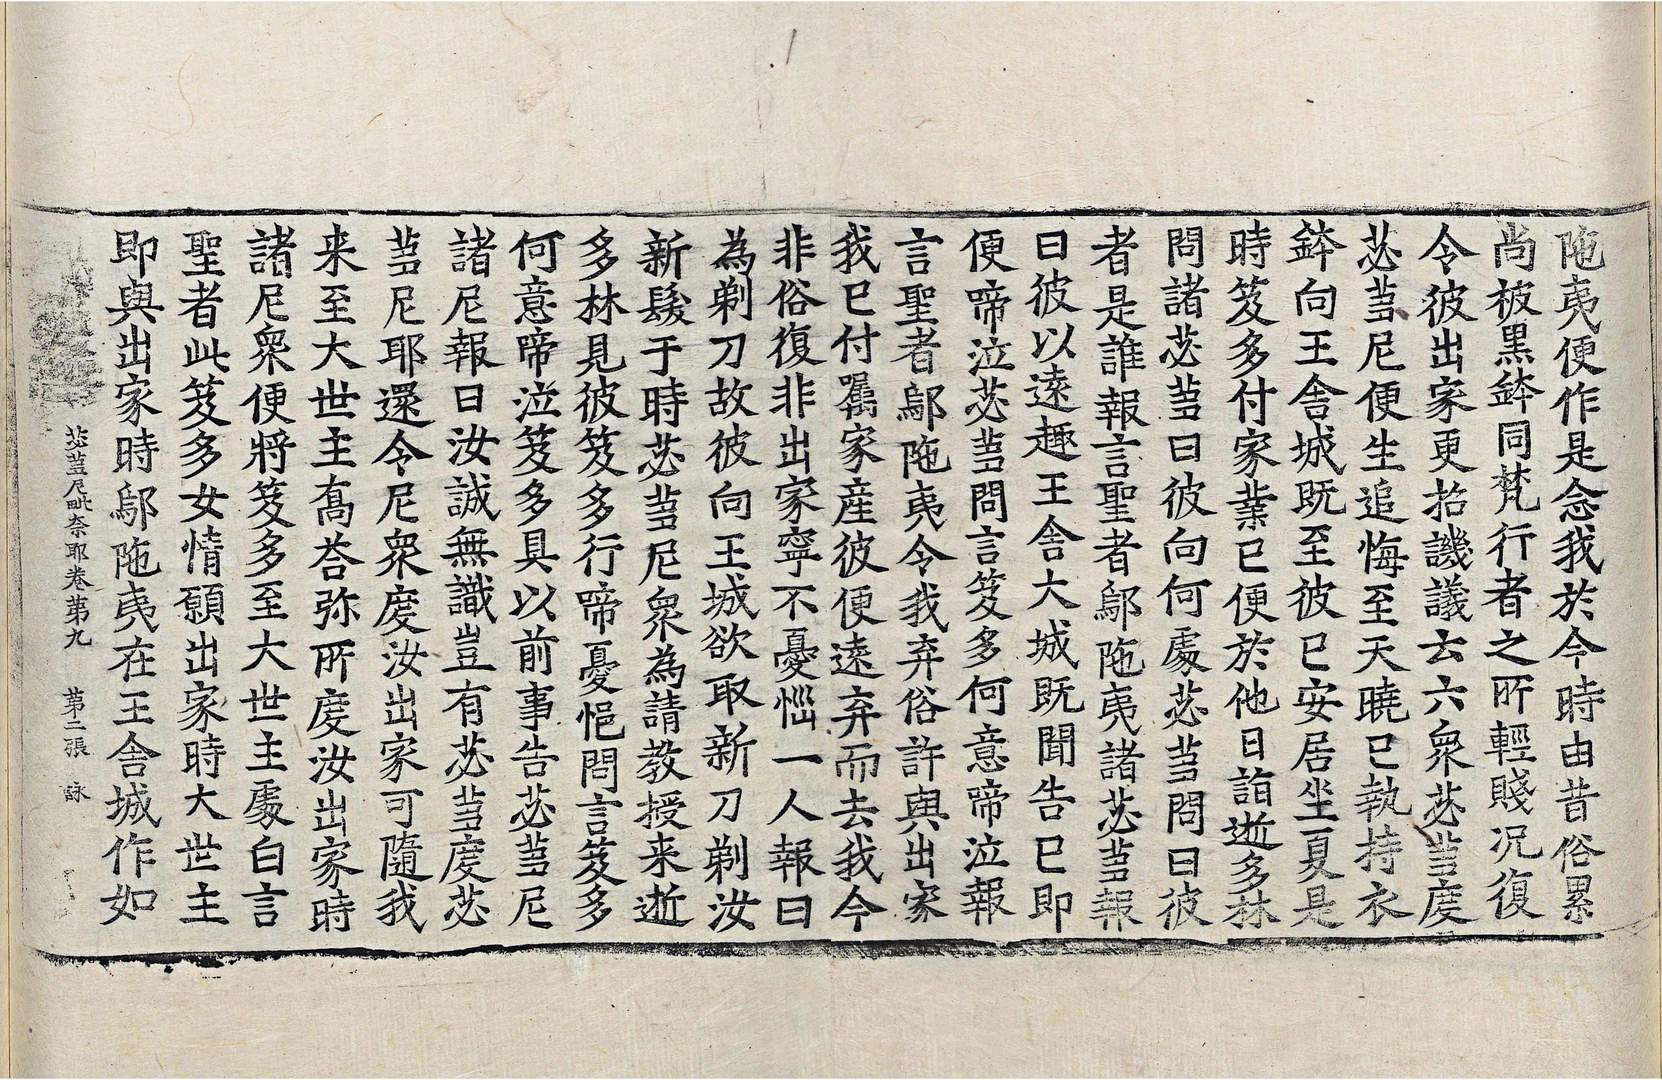 陁夷便作是念我於今時由昔俗累
尚被黑鉢同梵行者之所輕賤况復
令彼出家更招譏議去六衆苾芻度
苾芻尼便生追悔至天曉已執持衣
鉢向王舍城既至彼已安居坐夏是
時笈多付家業已便於他日詣逝多林
問諸苾芻曰彼向何處苾芻問曰彼
者是誰報言聖者鄔陁夷諸苾芻報
曰彼以遠趣王舍大城既聞告已即
便啼泣苾芻問言笈多何意啼泣報
言聖者鄔陁夷令我弃俗許與出家
我已付囑家産彼便遠弃而去我今
非俗復非出家寧不憂惱一人報曰
為剃刀故彼向王城欲取新刀剃汝
新髮于時苾芻尼衆為請教授来逝
多林見彼笈多行啼憂悒問言笈多
何意啼泣笈多具以前事告苾芻尼
諸尼報曰汝誠無識豈有苾芻度苾
芻尼耶還令尼衆度汝出家可隨我
来至大世主喬荅弥所度汝出家時
諸尼衆便將笈多至大世主處白言
聖者此笈多女情願出家時大世主
即與出家時鄔陁夷在王舍城作如
苾芻尼毗奈耶卷第九 第二張 詠